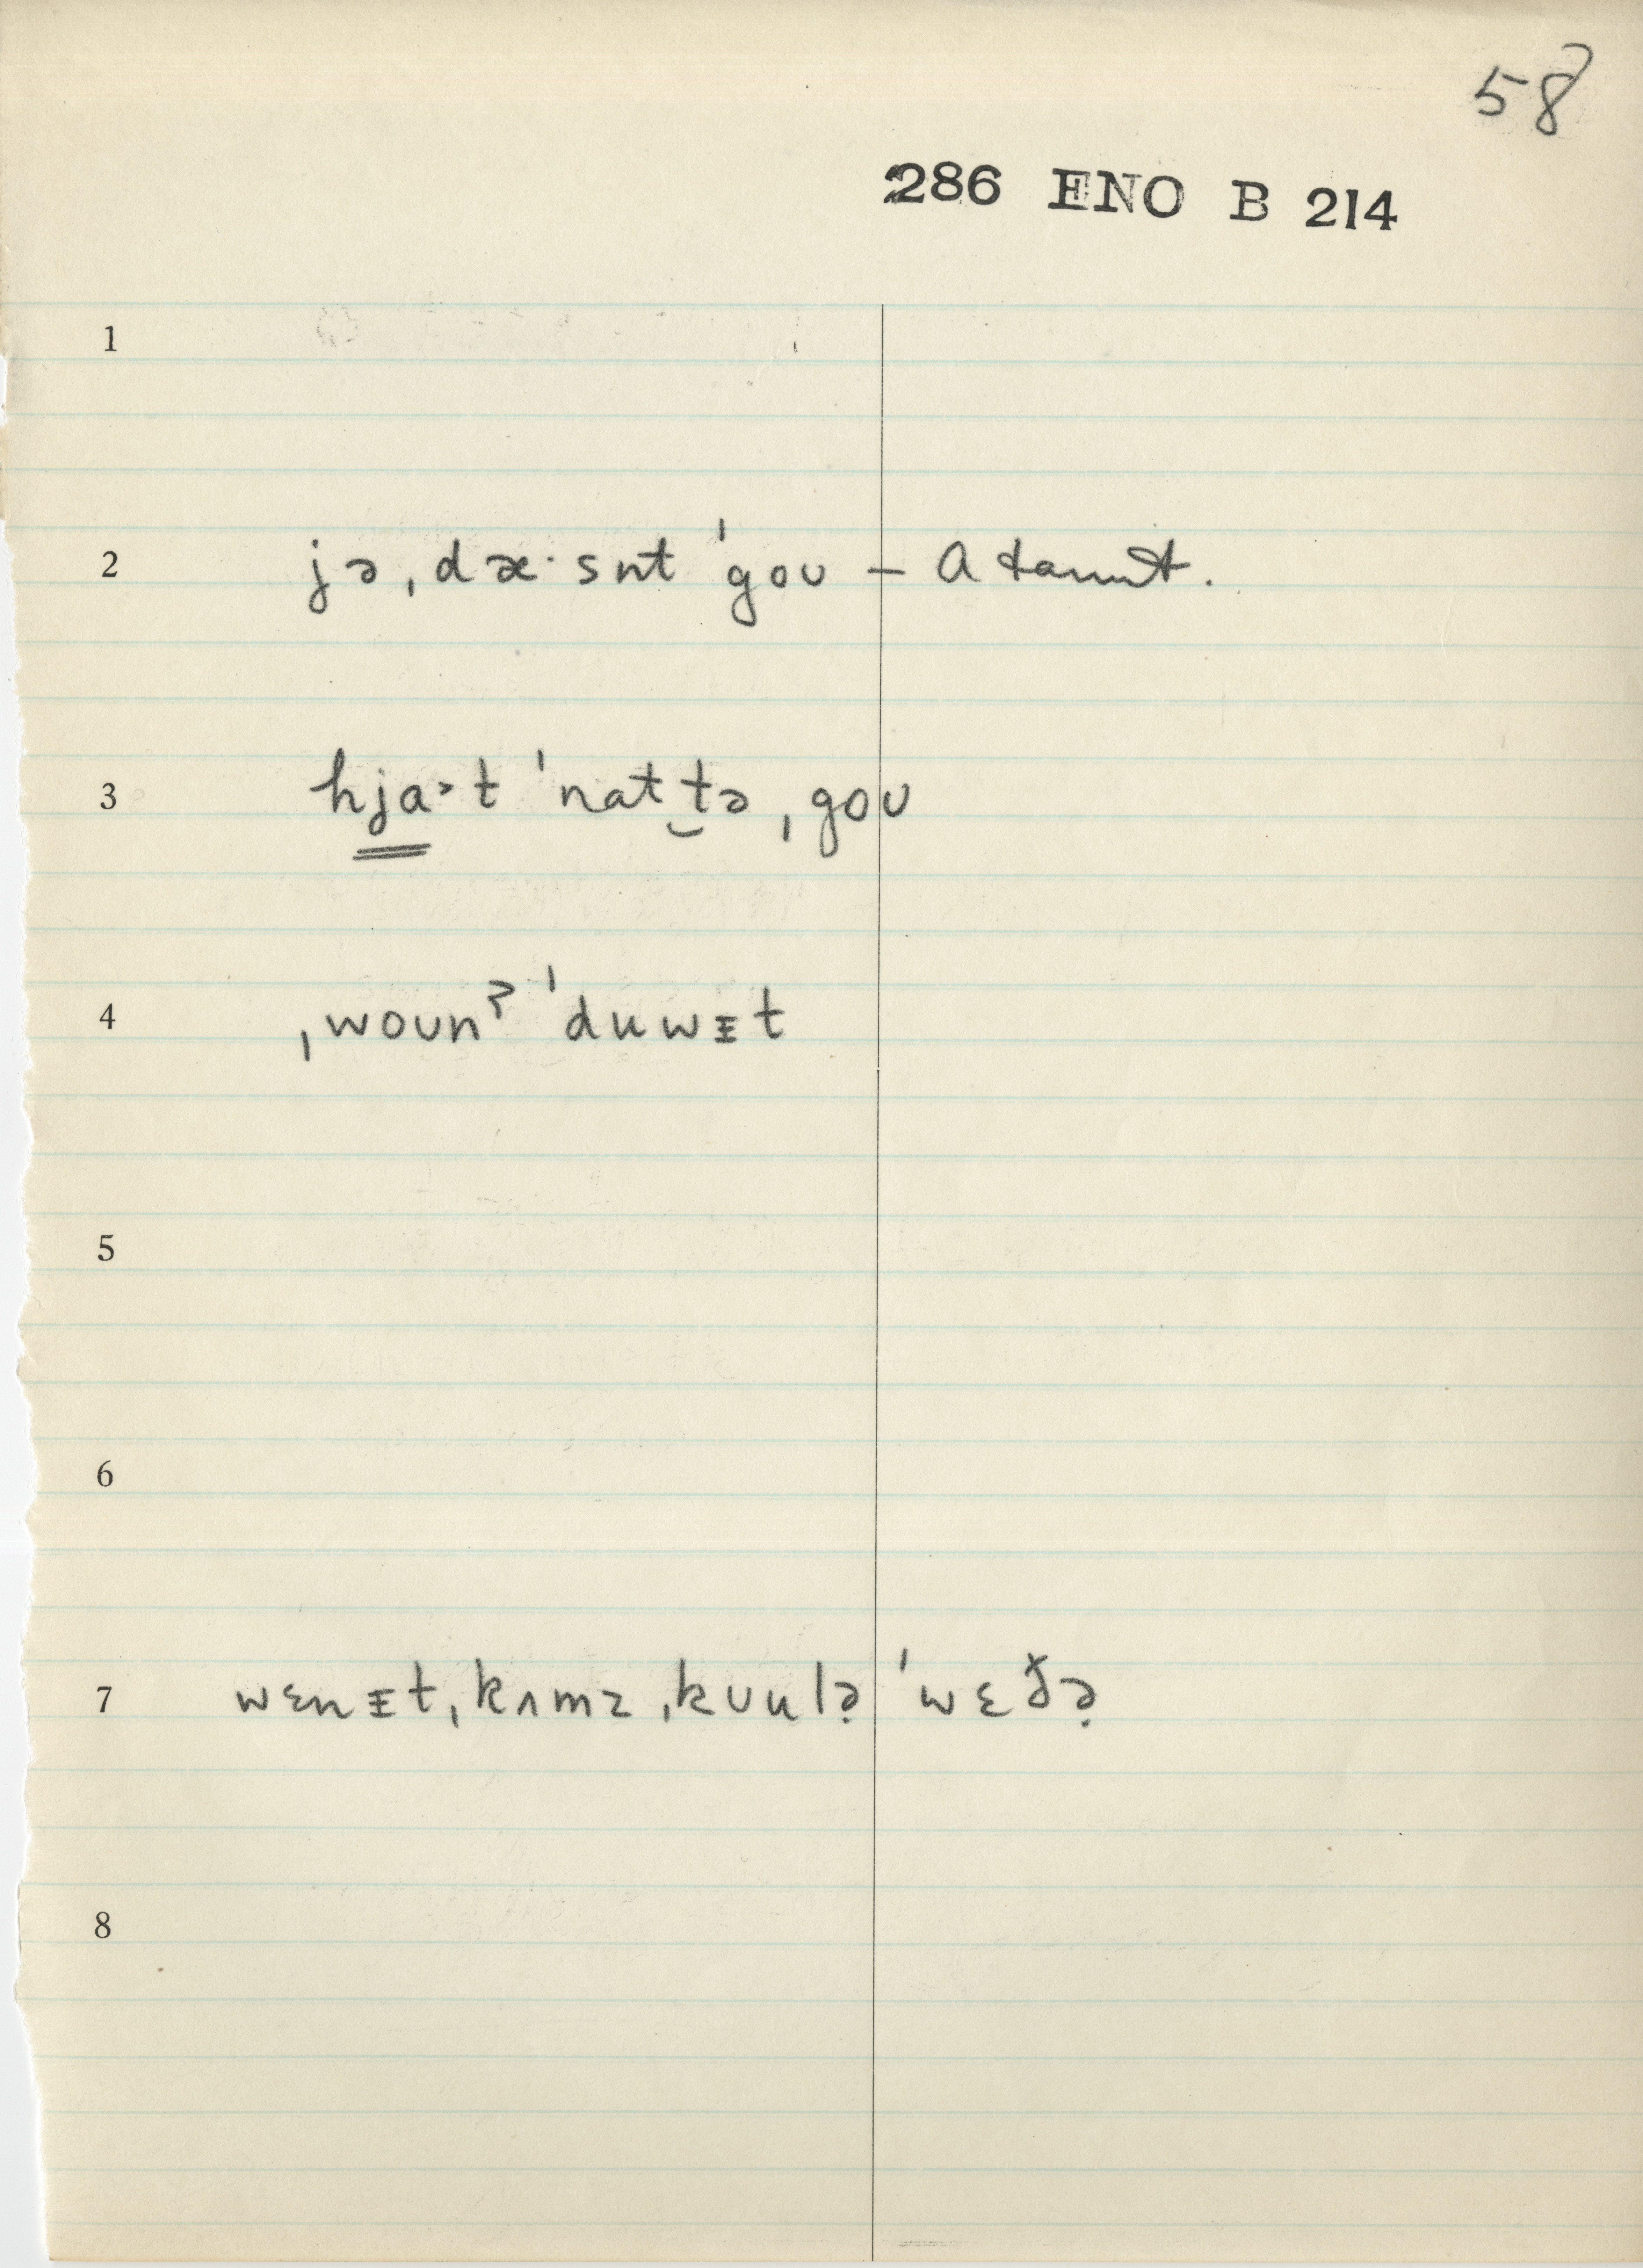 58
286 ENO B 214
1
2 jə ˌdæ·snt ˈgoʊ – A taunt.
3 hja˃t ˈnat t̮ə ˌgoʊ
4 ˌwoʊnˀ ˈduwᵻt
5
6
7 wɛnᵻt ˌkʌmz ˌkʊulə̣ ˈwɛðə̣
8